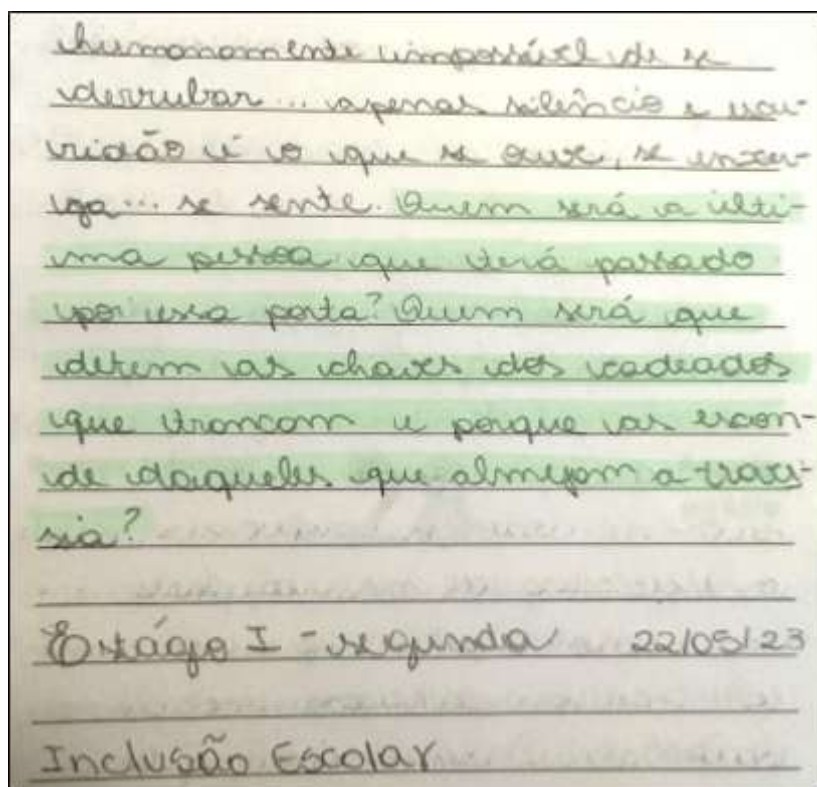 humanamente impossível de se
derrubar... apenas silêncio e escu-
ridão é o que se ouve, se enxer-
ga... se sente. Quem será a últi-
ma pessoa que terá passado
por essa porta? Quem será que
detem as chaves dos cadeados
que trancam e porque as escon-
de daqueles que almejam a traves-
sia?
Estágio I - segunda 22/05/23
Inclusão Escolar